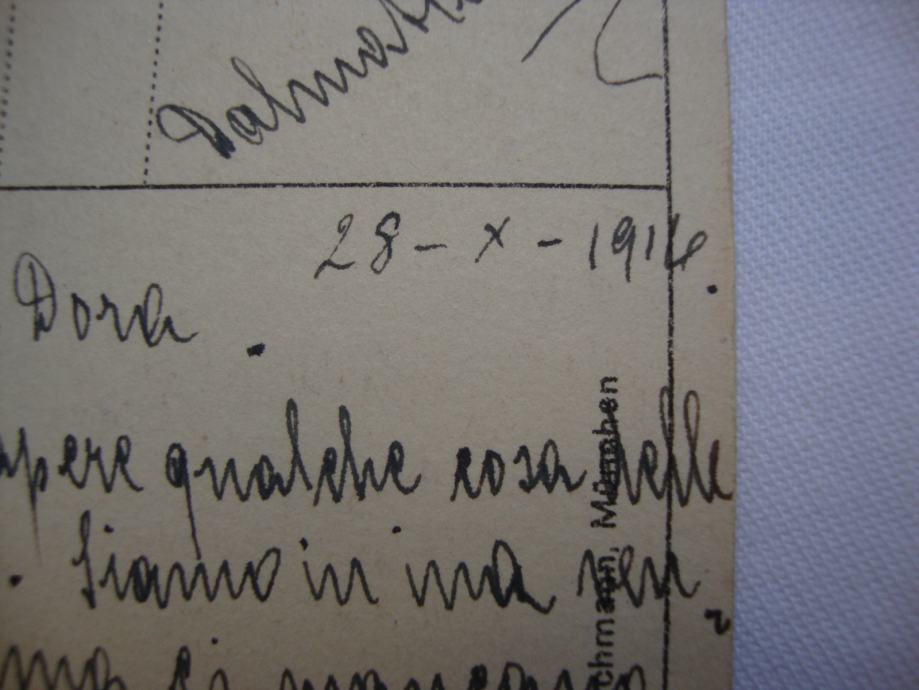 Dalmat
28 - X - 1914.
Dora.
pere qualche cosa delle
. Siamo in una
chmann, München